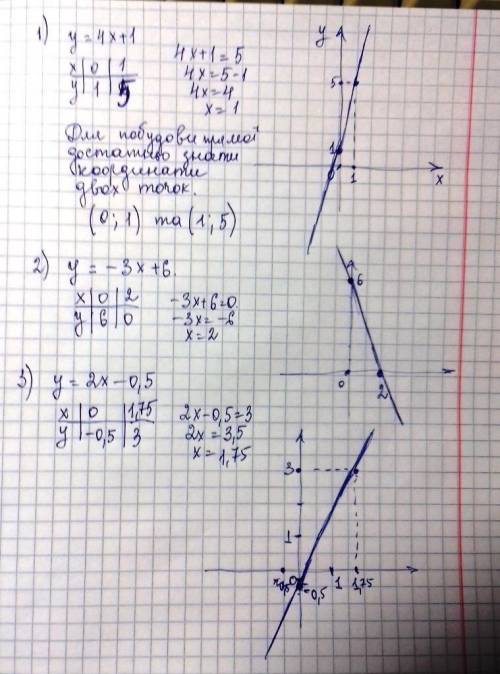 1) y = 4x+1
x | 0 | 1
y | 1 | 5
4x+1 = 5
4x = 5-1
4x = 4
x = 1
Для побудови прямої
достатньо знати
координати
двох точок.
(0; 1) та (1; 5)
y
5
1
0
1
x
2) y = -3x+6.
x | 0 | 2
y | 6 | 0
-3x+6=0
-3x=-6
x=2
6
0
2
3) y = 2x-0,5
x | 0 | 1,75
y | -0,5 | 3
2x-0,5=3
2x=3,5
x=1,75
3
1
0
-0,5
1
1,75